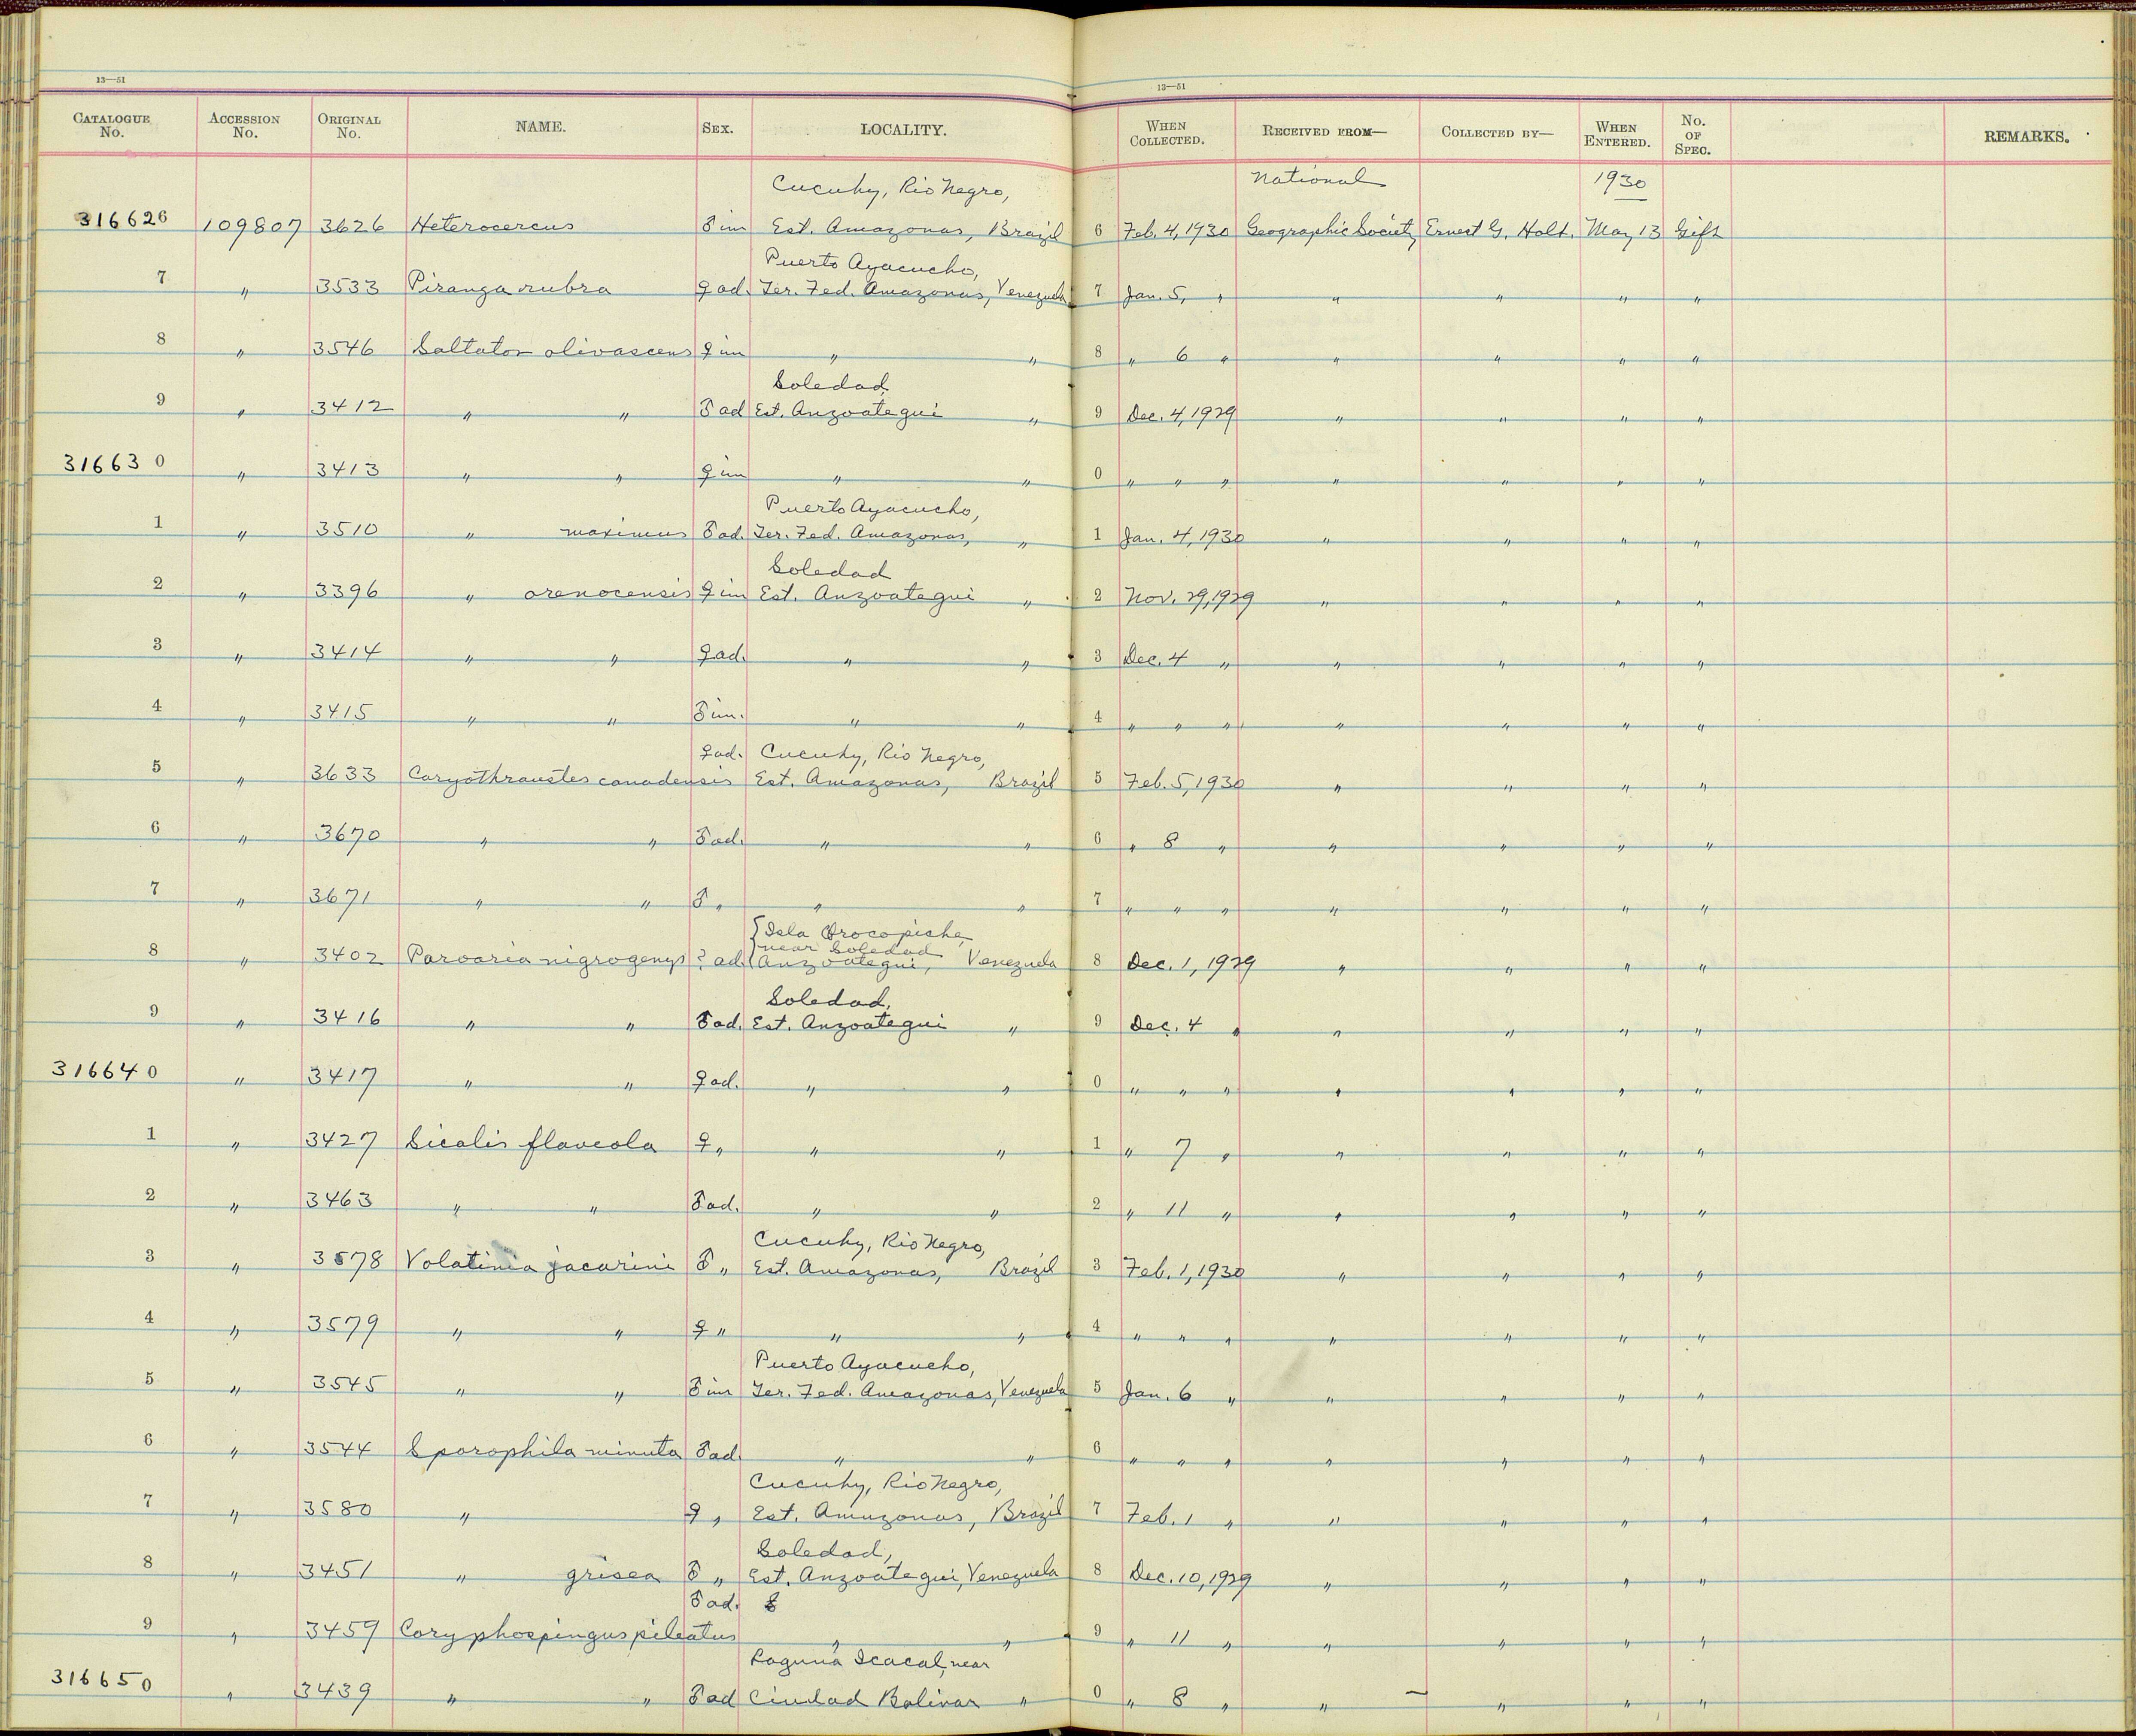 13—51
13—51
CATALOGUE No. ACCESSION No. ORIGINAL No. NAME. SEX. LOCALITY. WHEN COLLECTED. RECEIVED FROM— COLLECTED BY— WHEN ENTERED. No. OF SPEC. REMARKS.
Cucuhy, Rio Negro, National 1930
316626 109807 3626 Heterocercus ♂ im Est. Amazonas, Brazil 6 Feb. 4, 1930 Geographic Society Ernest G. Holt. May 13 Gift
Puerto Ayacucho,
7 " 3533 Piranga rubra ♀ ad. Ter. Fed. Amazonas, Venezuela 7 Jan. 5, " " " " "
8 " 3546 Saltator olivascens ♀ im " " 8 " 6 " " " " "
Soledad,
9 " 3412 " " ♂ ad Est. Anzoategui " 9 Dec. 4, 1929 " " " "
316630 " 3413 " " ♀ im " " 0 " " " " " " "
Puerto Ayacucho,
1 " 3510 " maximus ♂ ad. Ter. Fed. Amazonas, " 1 Jan. 4, 1930 " " " "
Soledad
2 " 3396 " orenocensis ♀ im Est. Anzoategui " 2 Nov. 29, 1929 " " " "
3 " 3414 " " ♀ ad. " " 3 Dec. 4 " " " " "
4 " 3415 " " ♂ im. " " 4 " " " " " " "
♀ ad. Cucuhy, Rio Negro,
5 " 3633 Caryothraustes canadensis Est. Amazonas, Brazil 5 Feb. 5, 1930 " " " "
6 " 3670 " " ♂ ad. " " 6 " 8 " " " " "
7 " 3671 " " ♂ " " " 7 " " " " " " "
{Isla Orocopiche,
near Soledad
8 " 3402 Paroaria nigrogenys ? ad. Anzoategui, Venezuela 8 Dec. 1, 1929 " " " "
Soledad,
9 " 3416 " " ♂ ad. Est. Anzoategui " 9 Dec. 4 " " " " "
316640 " 3417 " " ♀ ad. " " 0 " " " " " " "
1 " 3427 Sicalis flaveola ♀ " " " 1 " 7 " " " " "
2 " 3463 " " ♂ ad. " " 2 " 11 " " " " "
Cucuhy, Rio Negro,
3 " 3578 Volatinia jacarini ♂ " Est. Amazonas, Brazil 3 Feb. 1, 1930 " " " "
4 " 3579 " " ♀ " " " 4 " " " " " " "
Puerto Ayacucho,
5 " 3545 " " ♂ im Ter. Fed. Amazonas, Venezuela 5 Jan. 6 " " " " "
6 " 3544 Sporophila minuta ♂ ad. " " 6 " " " " " " "
Cucuhy, Rio Negro,
7 " 3580 " ♀ " Est. Amazonas, Brazil 7 Feb. 1 " " " " "
Soledad,
8 " 3451 " grisea ♂ " Est. Anzoategui, Venezuela 8 Dec. 10, 1929 " " " "
♂ ad.
9 " 3459 Coryphospingus pileatus " " 9 " 11 " " " " "
Laguna Icacal, near
316650 " 3439 " " ♂ ad Ciudad Bolivar " 0 " 8 " " " " "